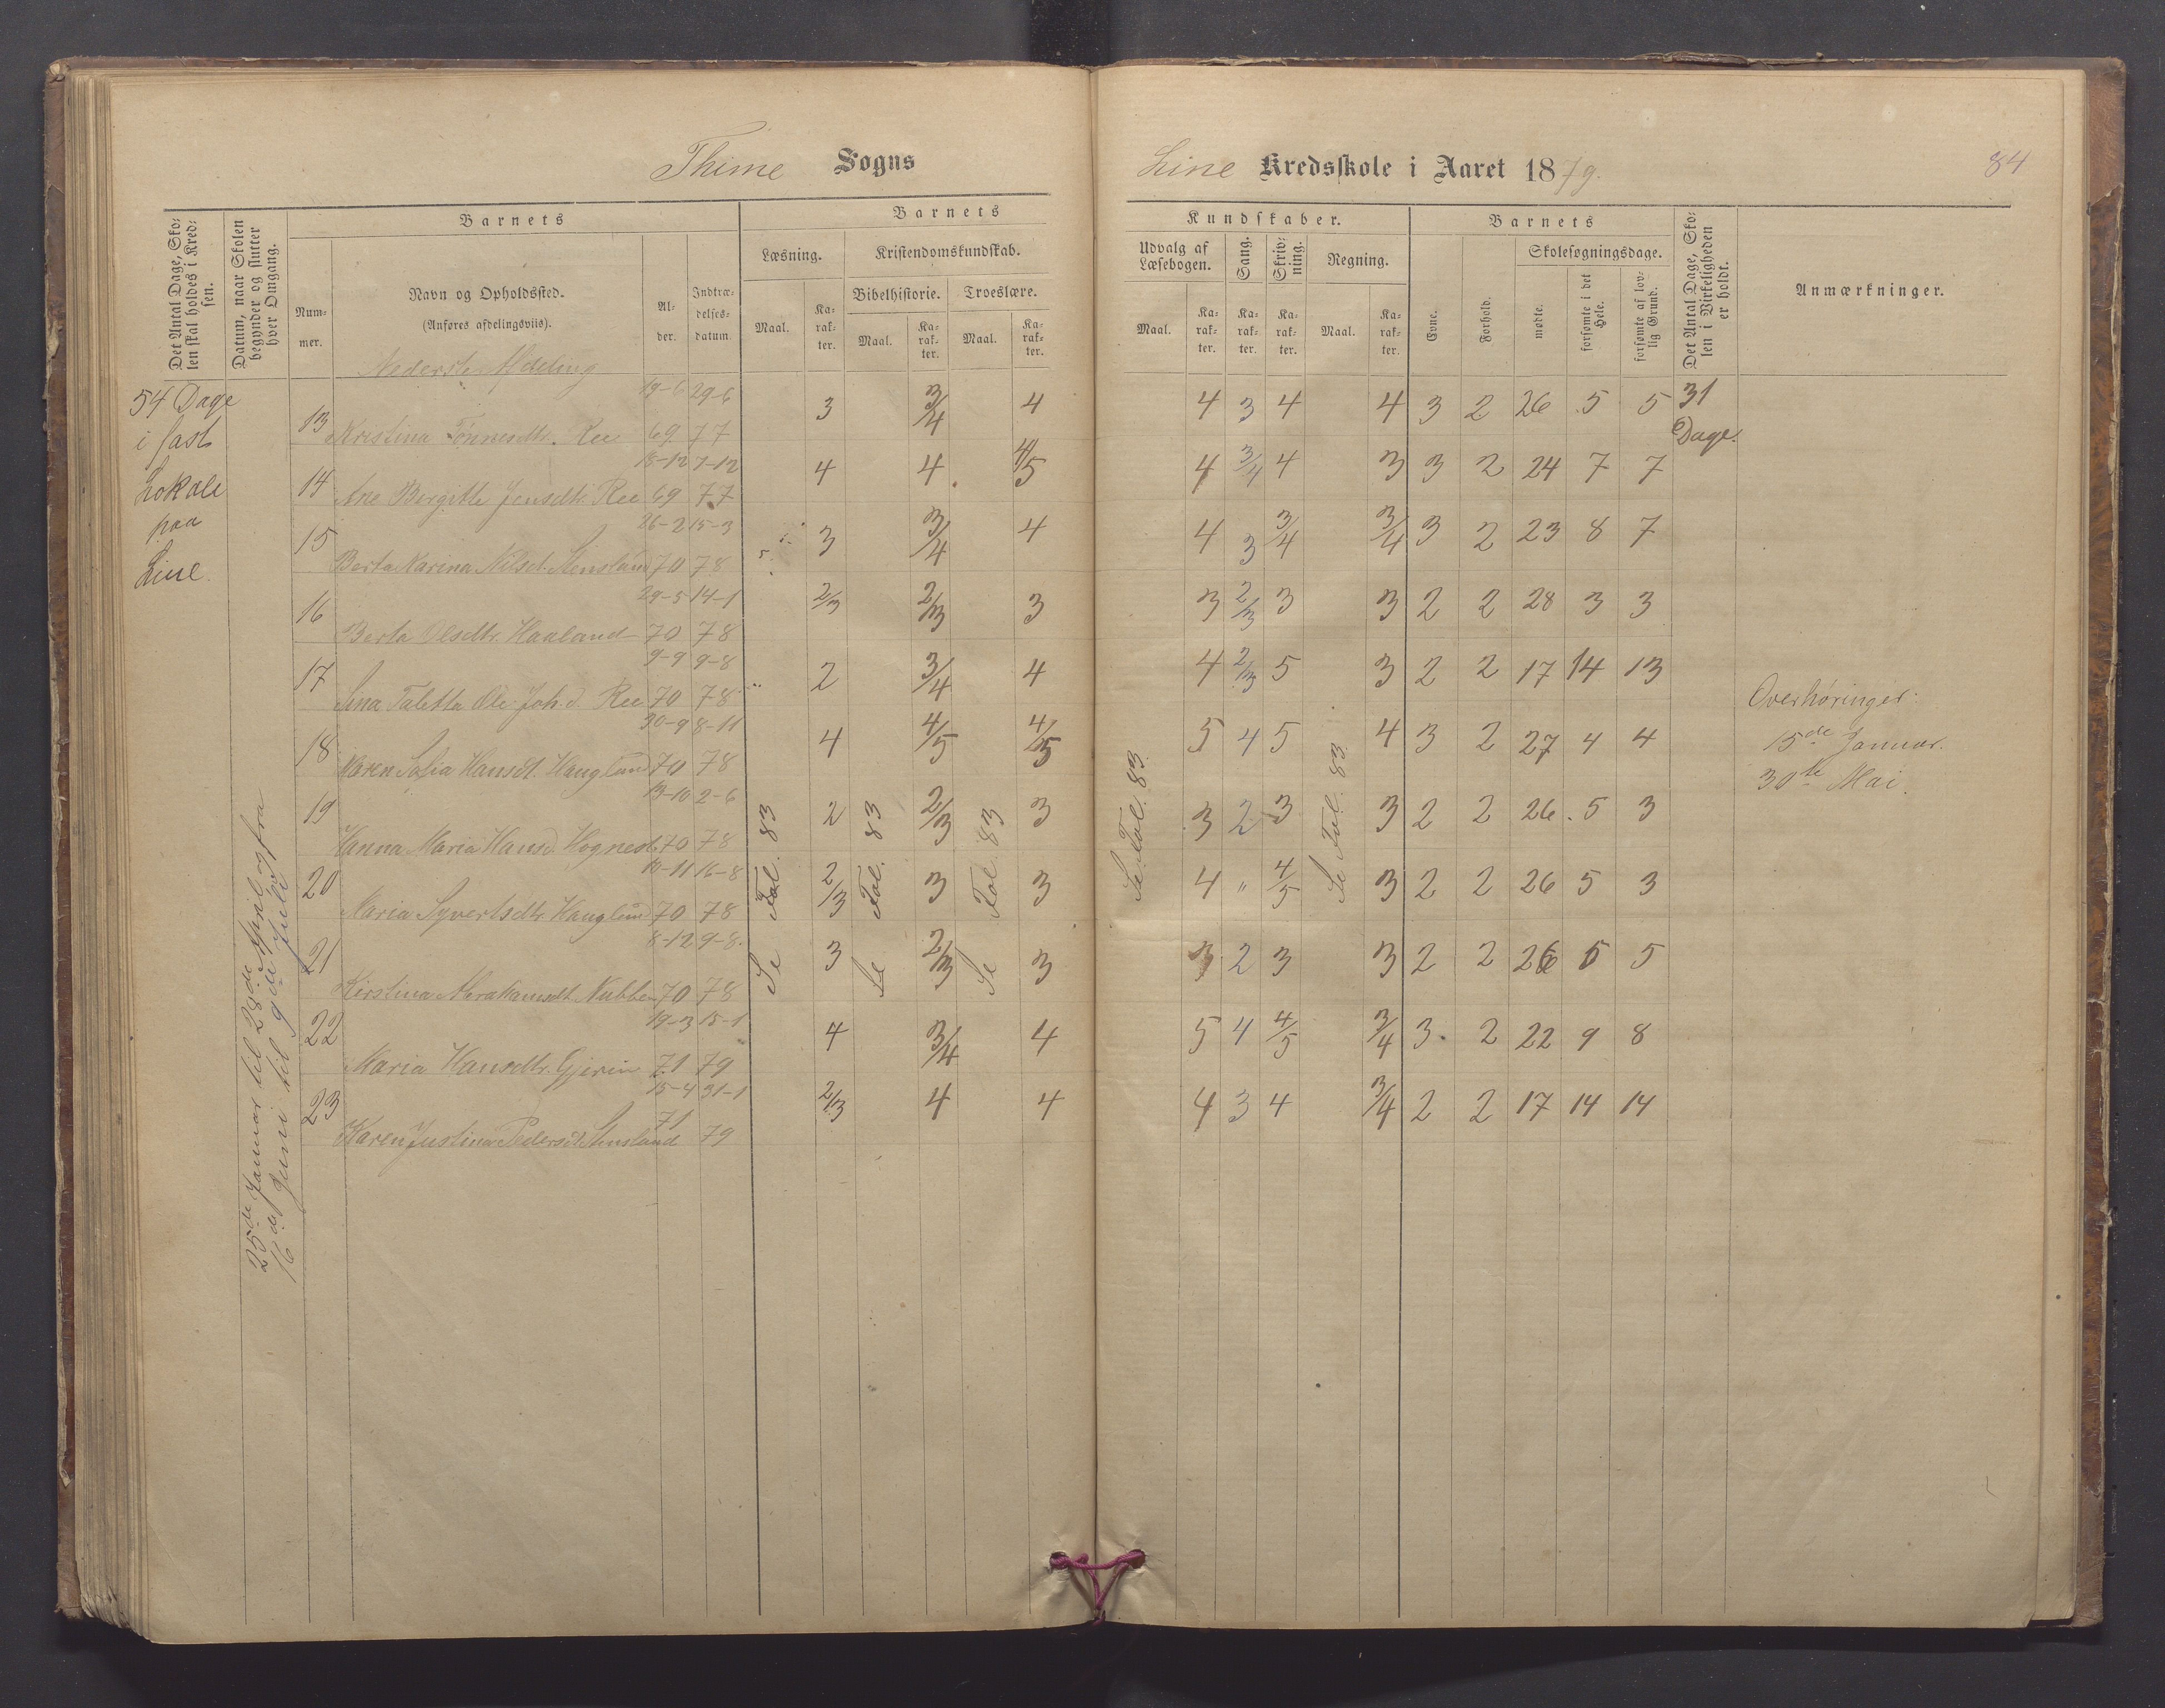 Thime Sogns
Line Kredsskole i Aaret 1879.
84
Det Antal Dage, Sko-
len skal holdes i Kred-
sen.
Datum, naar Skolen
begynder og slutter
hver Omgang.
Barnets
Num-
mer.
Navn og Opholdssted.
(Anføres afdelingsviis).
Al-
der.
Indtræ-
delses-
datum.
Barnets
Læsning.
Kristendomskundskab.
Bibelhistorie. Troeslære.
Maal. Ka-rak-ter. Maal. Ka-rak-ter. Maal. Ka-rak-ter.
Kundskaber.
Udvalg af Læsebogen.
Sang.
Skriv-ning.
Regning.
Maal. Ka-rak-ter. Ka-rak-ter. Ka-rak-ter. Maal. Ka-rak-ter.
Barnets
Evne.
Forhold.
Skolesøgningsdage.
mødte.
forsømte i det Hele.
forsømte af lov-lig Grund.
Det Antal Dage, Sko-
len i Virkeligheden
er holdt.
Anmærkninger.
Nederste Afdeling
54 Dage
i fast
Lokale
paa
Line.
25de Januar til 28de April og fra
16de Juni til 9de Juli
13 Kristina Tønnesdtr. Ree 19-6 69 29-6 77 3 3/4 4 4 3 4 4 3 2 26 5 5
14 Ane Bergitte Jensdtr. Ree 18-12 69 7-12 77 4 4 4/5 4 3/4 4 3 3 2 24 7 7
15 Berta Karina Nilsd. Stensland 26-2 70 15-3 78 3 3/4 4 4 3 3/4 3/4 3 2 23 8 7
16 Berta Olsdtr. Haaland 29-5 70 14-1 78 2/3 2/3 3 3 2/3 3 3 2 2 28 3 3
17 Sina Taletta Ole Joh.d. Ree 9-9 70 9-8 78 2 3/4 4 4 2/3 5 3 2 2 17 14 13
18 Karen Sofia Hansdt. Haugland 30-9 70 8-11 78 4 4/5 4/5 5 4 5 4 3 2 27 4 4
19 Hanna Maria Hansd. Hognest. 13-10 70 2-6 78 2 2/3 3 3 2 3 3 2 2 26 5 3
20 Maria Syvertsdtr. Haugland 10-11 70 16-8 78 2/3 3 3 4 " 4/5 3 2 2 26 5 3
21 Kirstina Abrahamsdt. Nubben 8-12 70 9-8 78 3 2/3 3 3 2 3 3 2 2 26 5 5
22 Maria Hansdtr. Gjerin 19-3 71 15-1 79 4 3/4 4 5 4 4/5 3/4 3 2 22 9 8
23 Karen Justina Pedersdt. Stensland 15-4 71 31-1 79 2/3 4 4 4 3 4 3/4 2 2 17 14 14
Se Fol. 83
Se Fol. 83
Se Fol. 83
Se Fol. 83.
Se Fol. 83.
31
Dage.
Overhøringer:
15de Januar.
30te Mai.